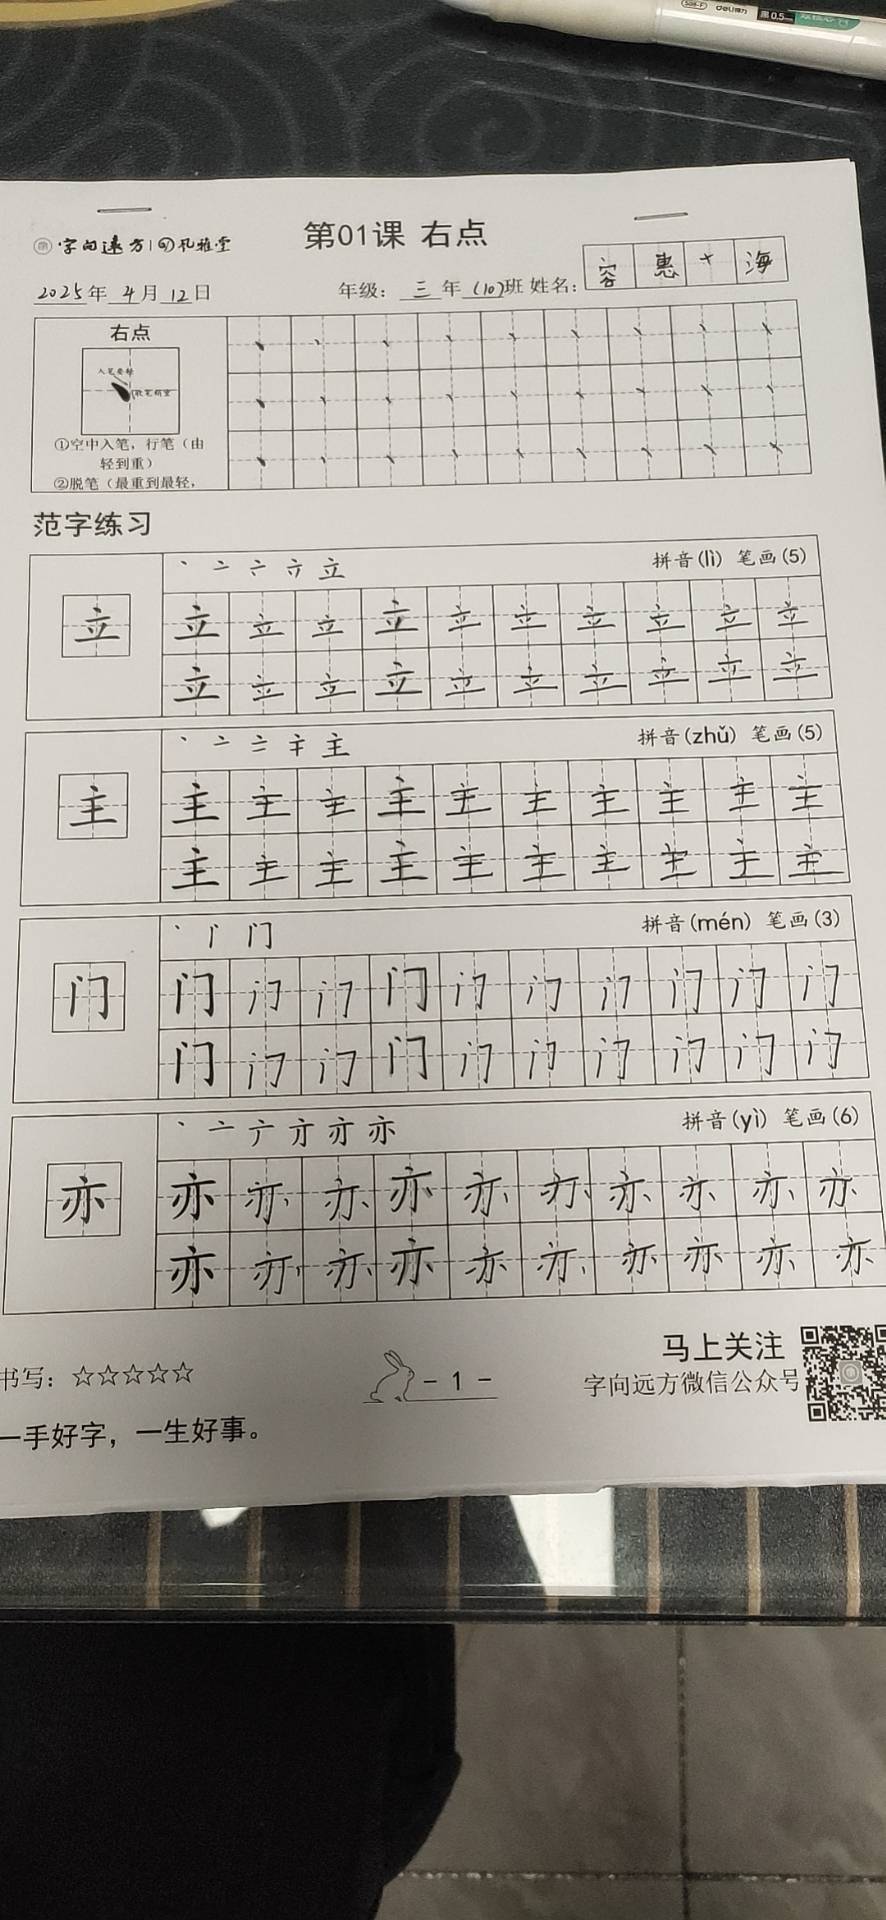 deli得力 黑0.5
字向远方 礼雅堂
第01课 右点
2025年 4月 12日 年级: 三 年 (10)班 姓名: 容 惠 十 海
右点
①空中入笔，行笔（由
轻到重）
②脱笔（最重到最轻，
范字练习
丶 亠 立 拼音(lì) 笔画(5)
立 立 立 立 立 立 立 立 立 立 立
立 立 立 立 立 立 立 立 立 立
丶 亠 主 拼音(zhǔ) 笔画(5)
主 主 主 主 主 主 主 主 主 主 主
主 主 主 主 主 主 主 主 主 主
丶 门 拼音(mén) 笔画(3)
门 门 门 门 门 门 门 门 门 门 门
门 门 门 门 门 门 门 门 门 门
丶 亠 亦 拼音(yì) 笔画(6)
亦 亦 亦 亦 亦 亦 亦 亦 亦 亦 亦
亦 亦 亦 亦 亦 亦 亦 亦 亦 亦
书写：☆☆☆☆☆ - 1 - 马上关注
字向远方微信公众号
一手好字，一生好事。